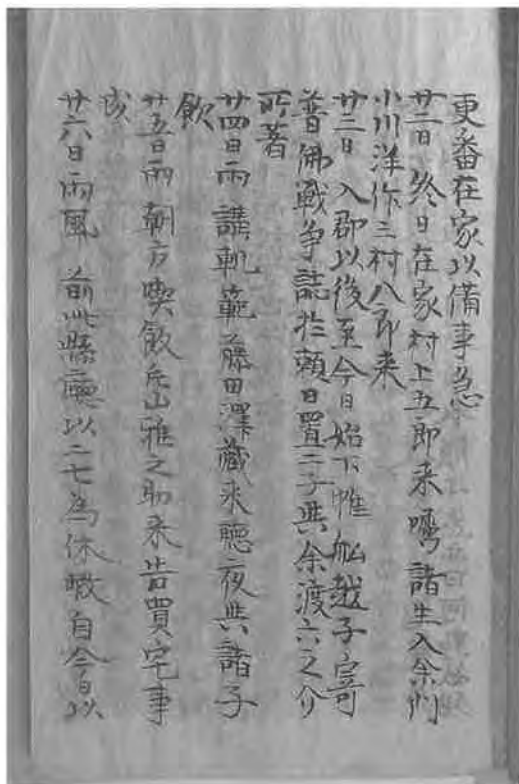 更番在家以備事急
廿二日 終日在家村上五郎来嘱諸生入余門
小川洋作三村八郎来
廿三日 入郡以後至今日始下帷船越子寄
普佛戦争誌於頼日置二子与余渡六之介
所著
廿四日雨 講軌範藤田澤蔵来聴夜与諸子
飲
廿五日雨 朝方喫飯丘山雅之助来告買宅事
成
廿六日雨風 前此縣廳以二七為休暇自今日以